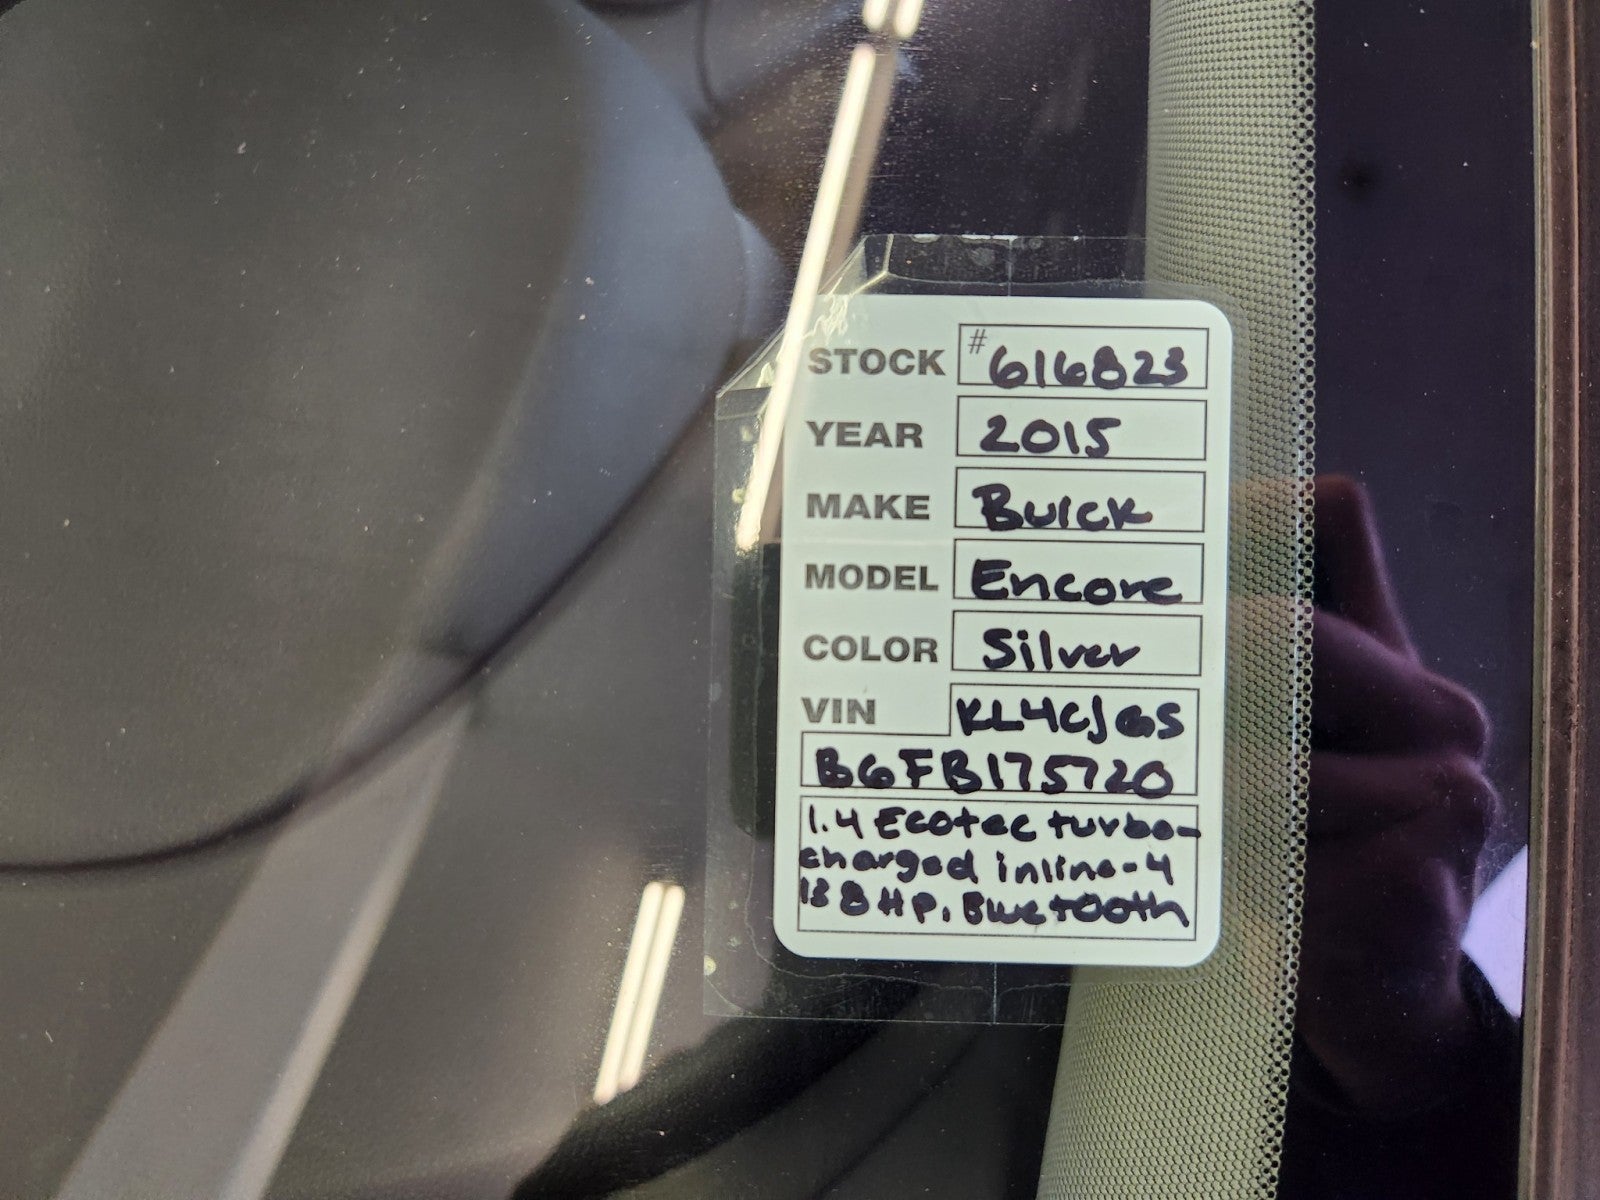 STOCK #616823
YEAR 2015
MAKE Buick
MODEL Encore
COLOR Silver
VIN KL4CJGS
B6FB175720
1.4 Ecotec turbo-
charged inline-4
138 HP. Bluetooth